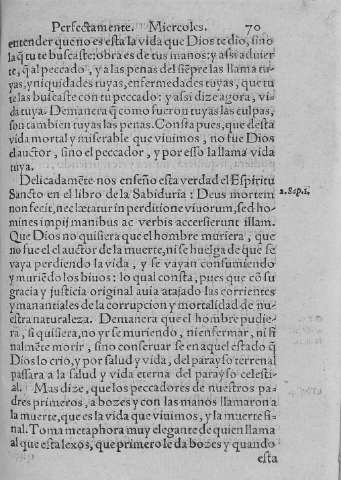 Perfectamente. Miercoles. 70
entender que no es esta la vida que Dios te dio, sino
la q̃ tu te buscaste: obra es de tus manos: y assi aduier
te, q̃ al peccado, y a las penas del siẽpre las llama tu-
yas, y niquidades tuyas, enfermedades tuyas, que tu
te las buscaste con tu peccado: y assi dize agora, vi-
da tuya. Demanera q̃ como fueron tuyas las culpas,
son tambien tuyas las penas. Consta pues, que desta
vida mortal y miserable que viuimos, no fue Dios
el auctor, sino el peccador, y por esso la llama vida
tuya.
Delicadamẽte nos enseño esta verdad el Espiritu
Sancto en el libro de la Sabiduria: Deus mortem
2. Sap. i.
non fecit, nec lætatur in perditione viuorum, sed ho-
mines impij manibus ac verbis accersierunt illam.
Que Dios no quisiera que el hombre muriera, que
no fue el el auctor de la muerte, ni se huelga de que se
vaya perdiendo la vida, y se vayan consumiendo
y muriẽdo los biuos: lo qual consta, pues que cõ su
gracia y justicia original auia atajado las corrientes
y manantiales de la corrupcion y mortalidad de nu-
estra naturaleza. Demanera que el hombre pudie-
ra, si quisiera, no yrse muriendo, ni enfermar, ni fi
nalmẽte morir, sino conseruarse en aquel estado q̃
Dios lo crio, y por salud y vida, del parayso terrenal
passara a la salud y vida eterna del parayso celesti-
al. Mas dize, que los peccadores de nuestros pa-
dres primeros, a bozes y con las manos llamaron a
la muerte, que es la vida que viuimos, y la muerte fi-
nal. Toma metaphora muy elegante de quien llama
al que esta lexos, que primero le da bozes y quando
esta